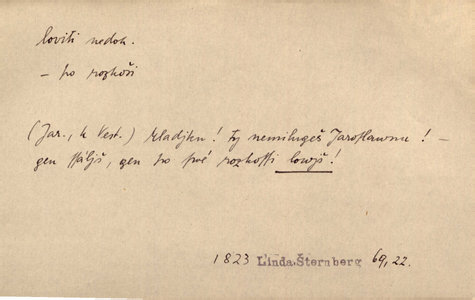 loviti nedok.
– po rozkoši
(Jar., k Vest.) Mladjku! ty nemilugeš Jaroslawnu! –
gen ssáljš, gen po své rozkossi lowjš!
1823 Linda, Šternberg 69, 22.